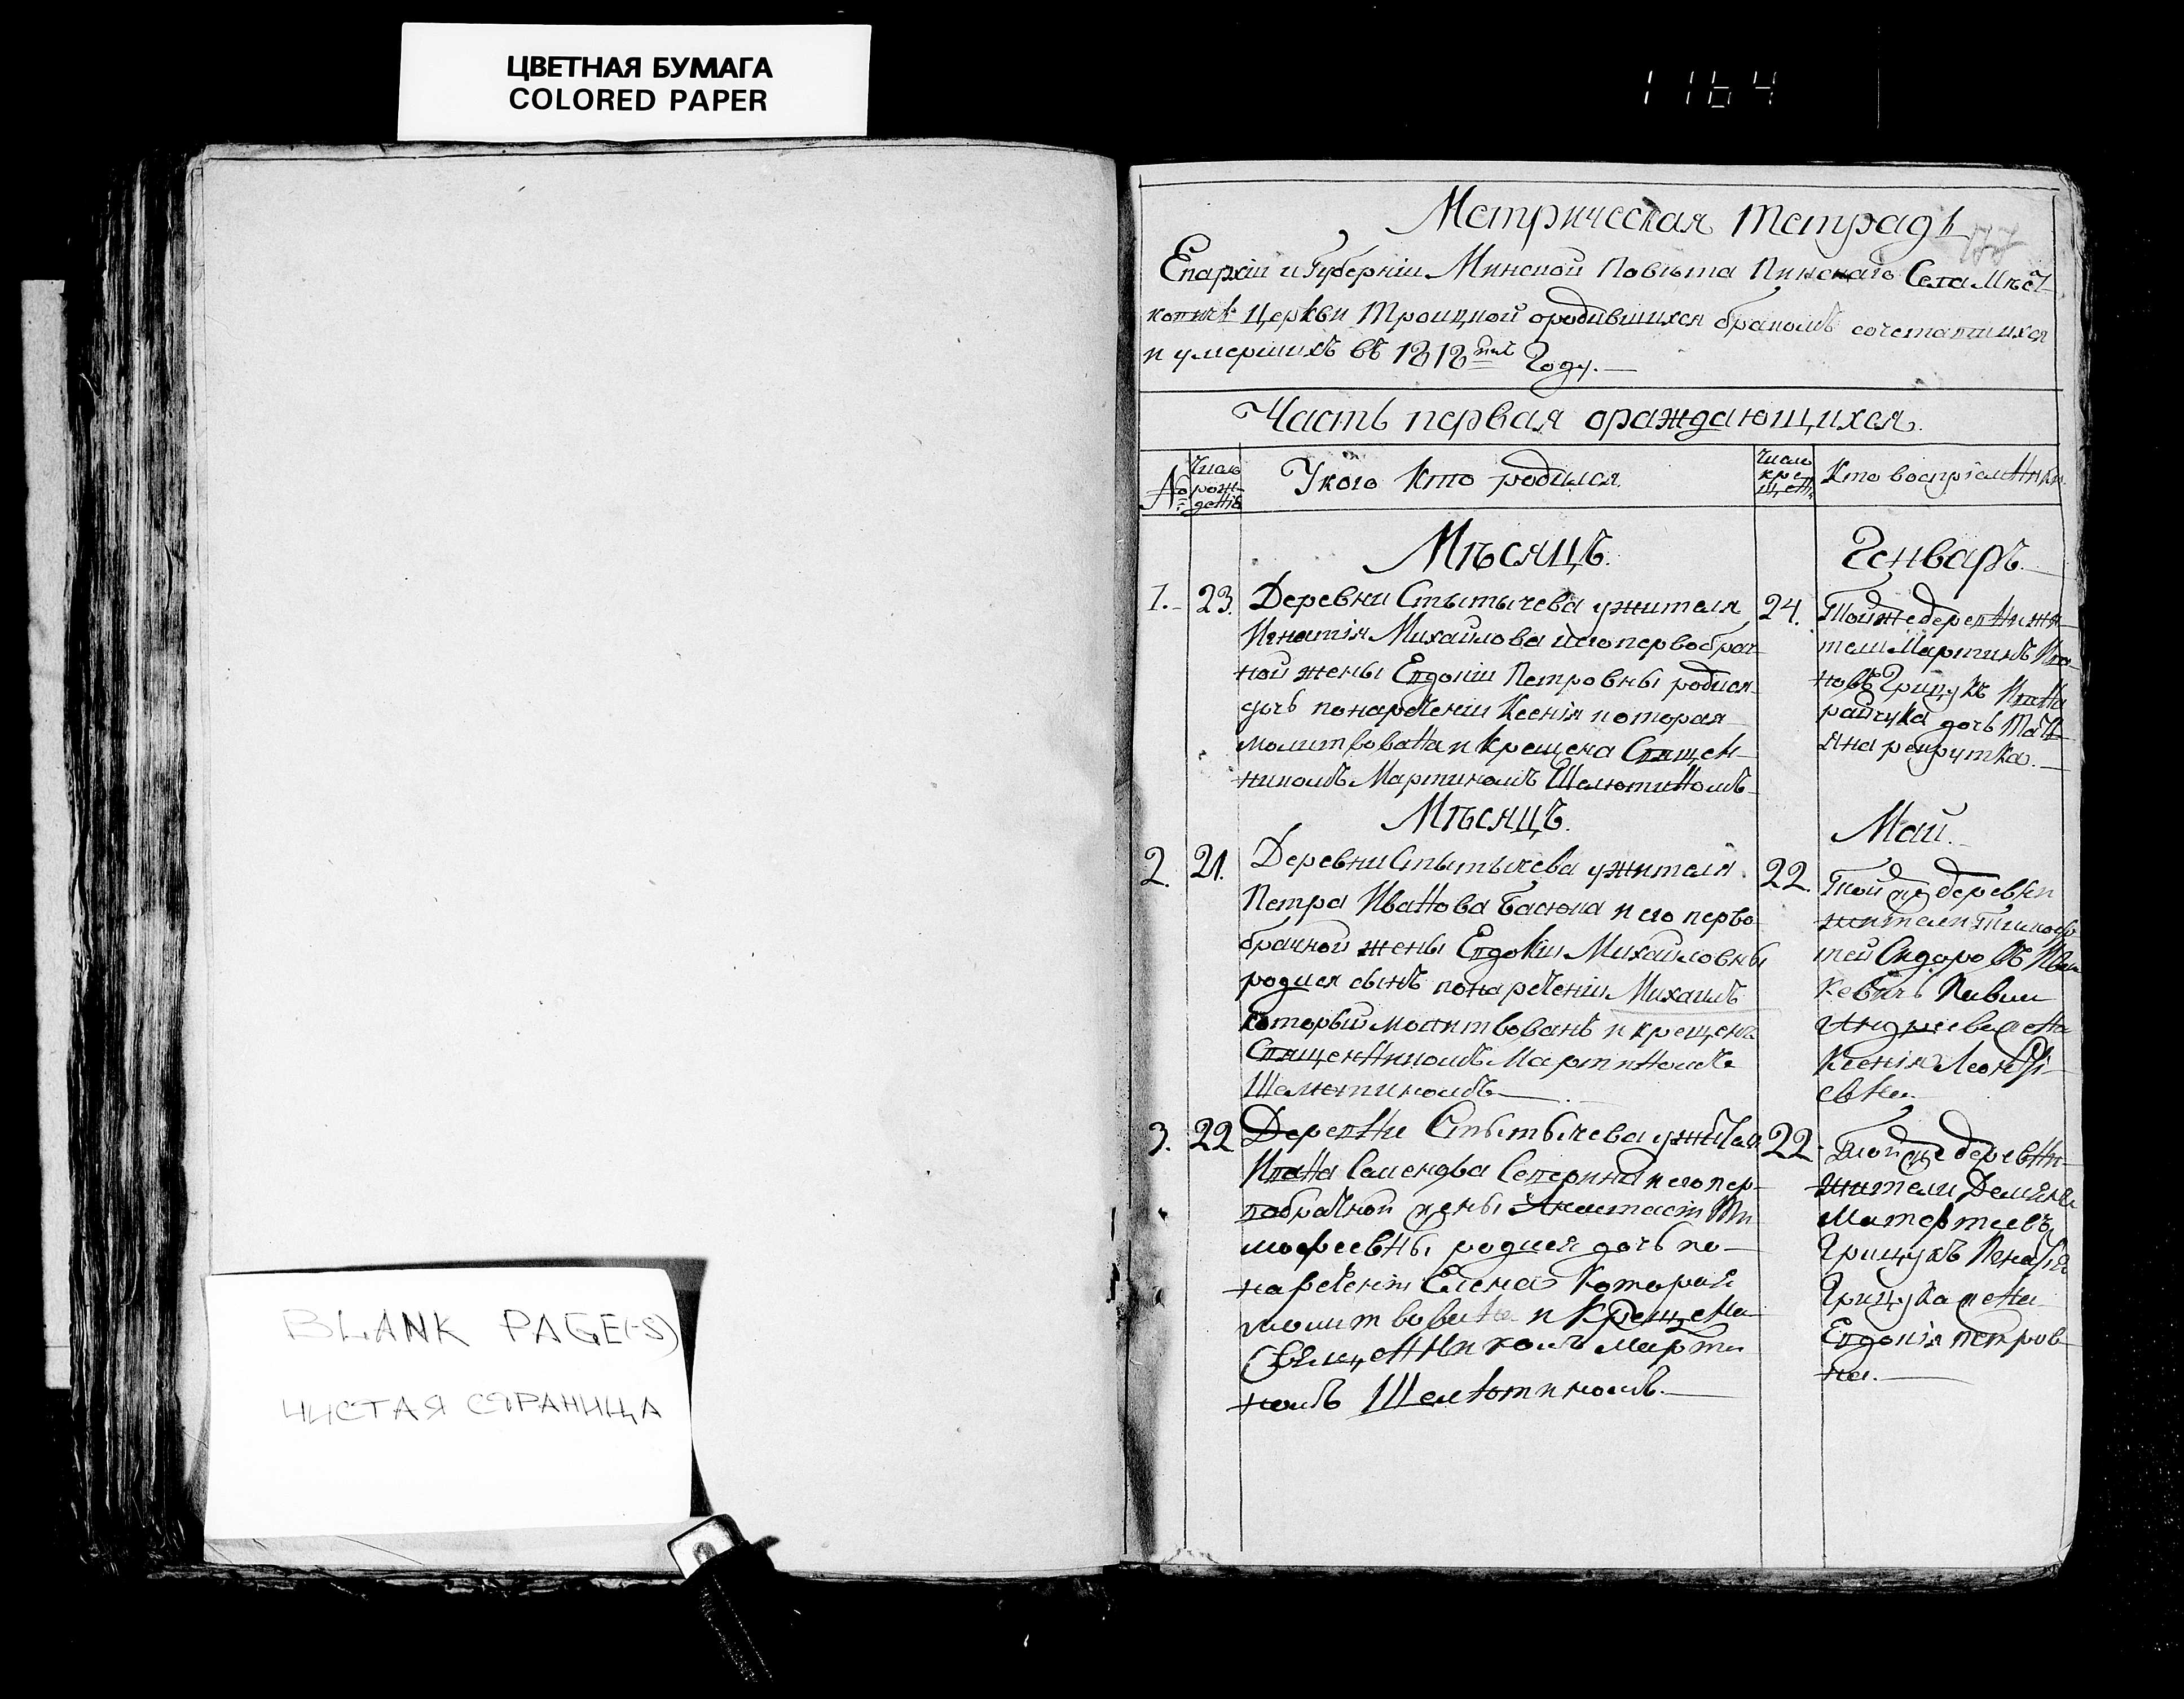 ЦВЕТНАЯ БУМАГА
COLORED PAPER
1164
BLANK PAGE(-S)
ЧИСТАЯ СТРАНИЦА
Метрическая тетрадь
177
Епархіи и Губерніи Минской Повѣта Пинскаго Села Мѣст
ковичь Церкви Троицкой ородившихся бракомъ сочетавшихся
и умершихъ въ 1818 Году.
Часть первая ораждающихся.
№ Число рож-
денія
У кого Кто родился.
Число
кре
щен.
Кто воспріемники
Мѣсяцъ. Генварь.
1. 23. Деревни Стытычева ужителя
Игнатія Михайлова иего первобрач
ной жены Евдокіи Петровны родися
дочь понареченіи Ксенія которая
молитвована и Крещена Священ-
никомъ Мартиномъ Шелютиномъ
24. Тойже деревни жи
тели Мартинъ Ива
новъ Грицукъ Ивана
райчука дочь Тать
яна рекрутка.
Мѣсяцъ. Май.
2. 21. Деревни Стытычева ужителя
Петра Иванова Басюка и его перво
брачной жены Евдокіи Михайловны
родися сынъ понареченіи Михаилъ
который молитвованъ и крещенъ
Священникомъ Мартиномъ
Шелютиномъ
22. Тойже деревни
жители Тимоф
тей Сидоровъ Ива
кевичь
Андреева жена
Ксенія Леонті
евна
3. 22 Деревни Стытычева ужителя
Ивана Семенова Северина и его пер-
вобрачной жены Анастасіи Ти
мофеевны родися дочь по-
нареченіи Елена Которая
молитвована и Крещена
Священникомъ Марти
номъ Шелютиномъ.
22. Тойже деревни
жители Демянъ
Матфтеевъ
Грицукъ Игнатія
Грицука жена
Евдокія Петров
на.